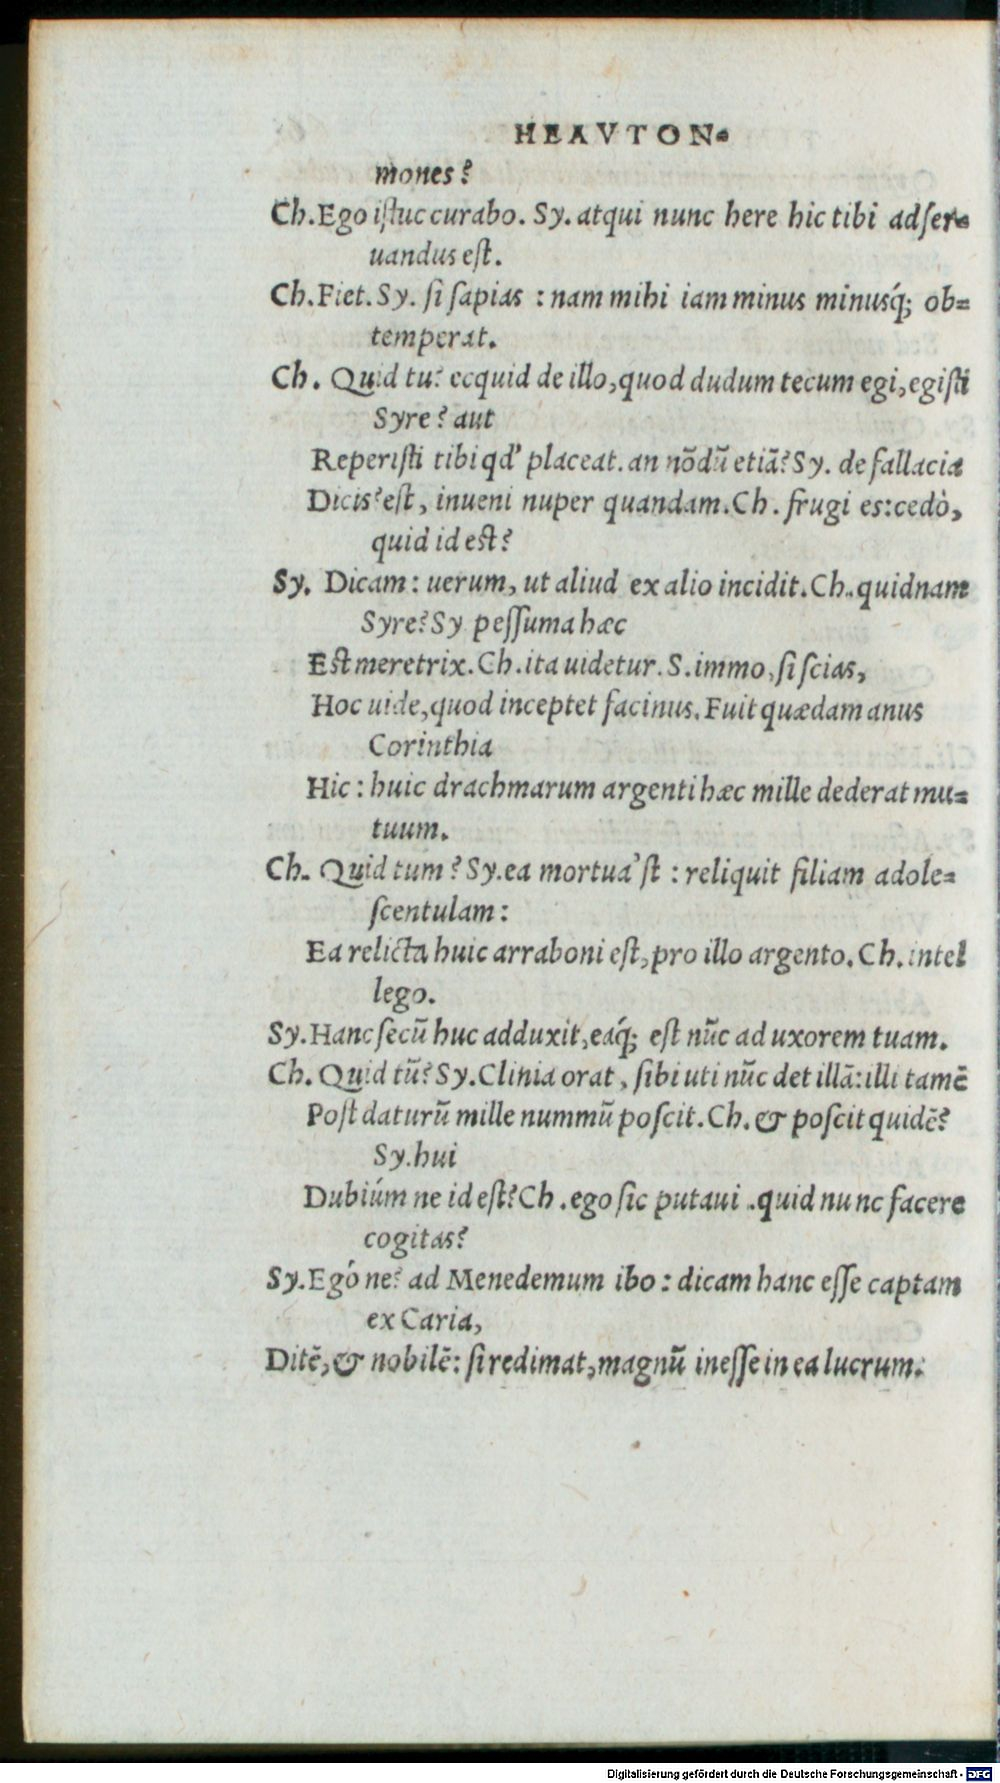 HEAVTON-
mones?
Ch.Ego istuc curabo. Sy. atqui nunc here hic tibi adser-
uandus est.
Ch.Fiet. Sy. si sapias : nam mihi iam minus minusq́; ob-
temperat.
Ch. Quid tu? ecquid de illo, quod dudum tecum egi, egisti
Syre? aut
Reperisti tibi qd' placeat. an nõdũ etiã? Sy. de fallacia
Dicis? est, inueni nuper quandam. Ch. frugi es: cedò,
quid id est?
Sy. Dicam: uerum, ut aliud ex alio incidit. Ch. quidnam
Syre? Sy pessuma hæc
Est meretrix. Ch. ita uidetur. S. immo, si scias,
Hoc uide, quod inceptet facinus. Fuit quædam anus
Corinthia
Hic: huic drachmarum argenti hæc mille dederat mu-
tuum.
Ch. Quid tum? Sy. ea mortua'st : reliquit filiam adole-
scentulam:
Ea relicta huic arraboni est, pro illo argento. Ch. intel
lego.
Sy. Hanc secũ huc adduxit, eaq́; est nũc ad uxorem tuam.
Ch. Quid tũ? Sy. Clinia orat, sibi uti nũc det illã: illi tamẽ
Post daturũ mille nummũ poscit. Ch. & poscit quidẽ?
Sy. hui
Dubiúm ne id est? Ch. ego sic putaui. quid nunc facere
cogitas?
Sy. Egó ne? ad Menedemum ibo: dicam hanc esse captam
ex Caria,
Ditẽ, & nobilẽ: si redimat, magnũ inesse in ea lucrum.
Digitalisierung gefördert durch die Deutsche Forschungsgemeinschaft - DFG